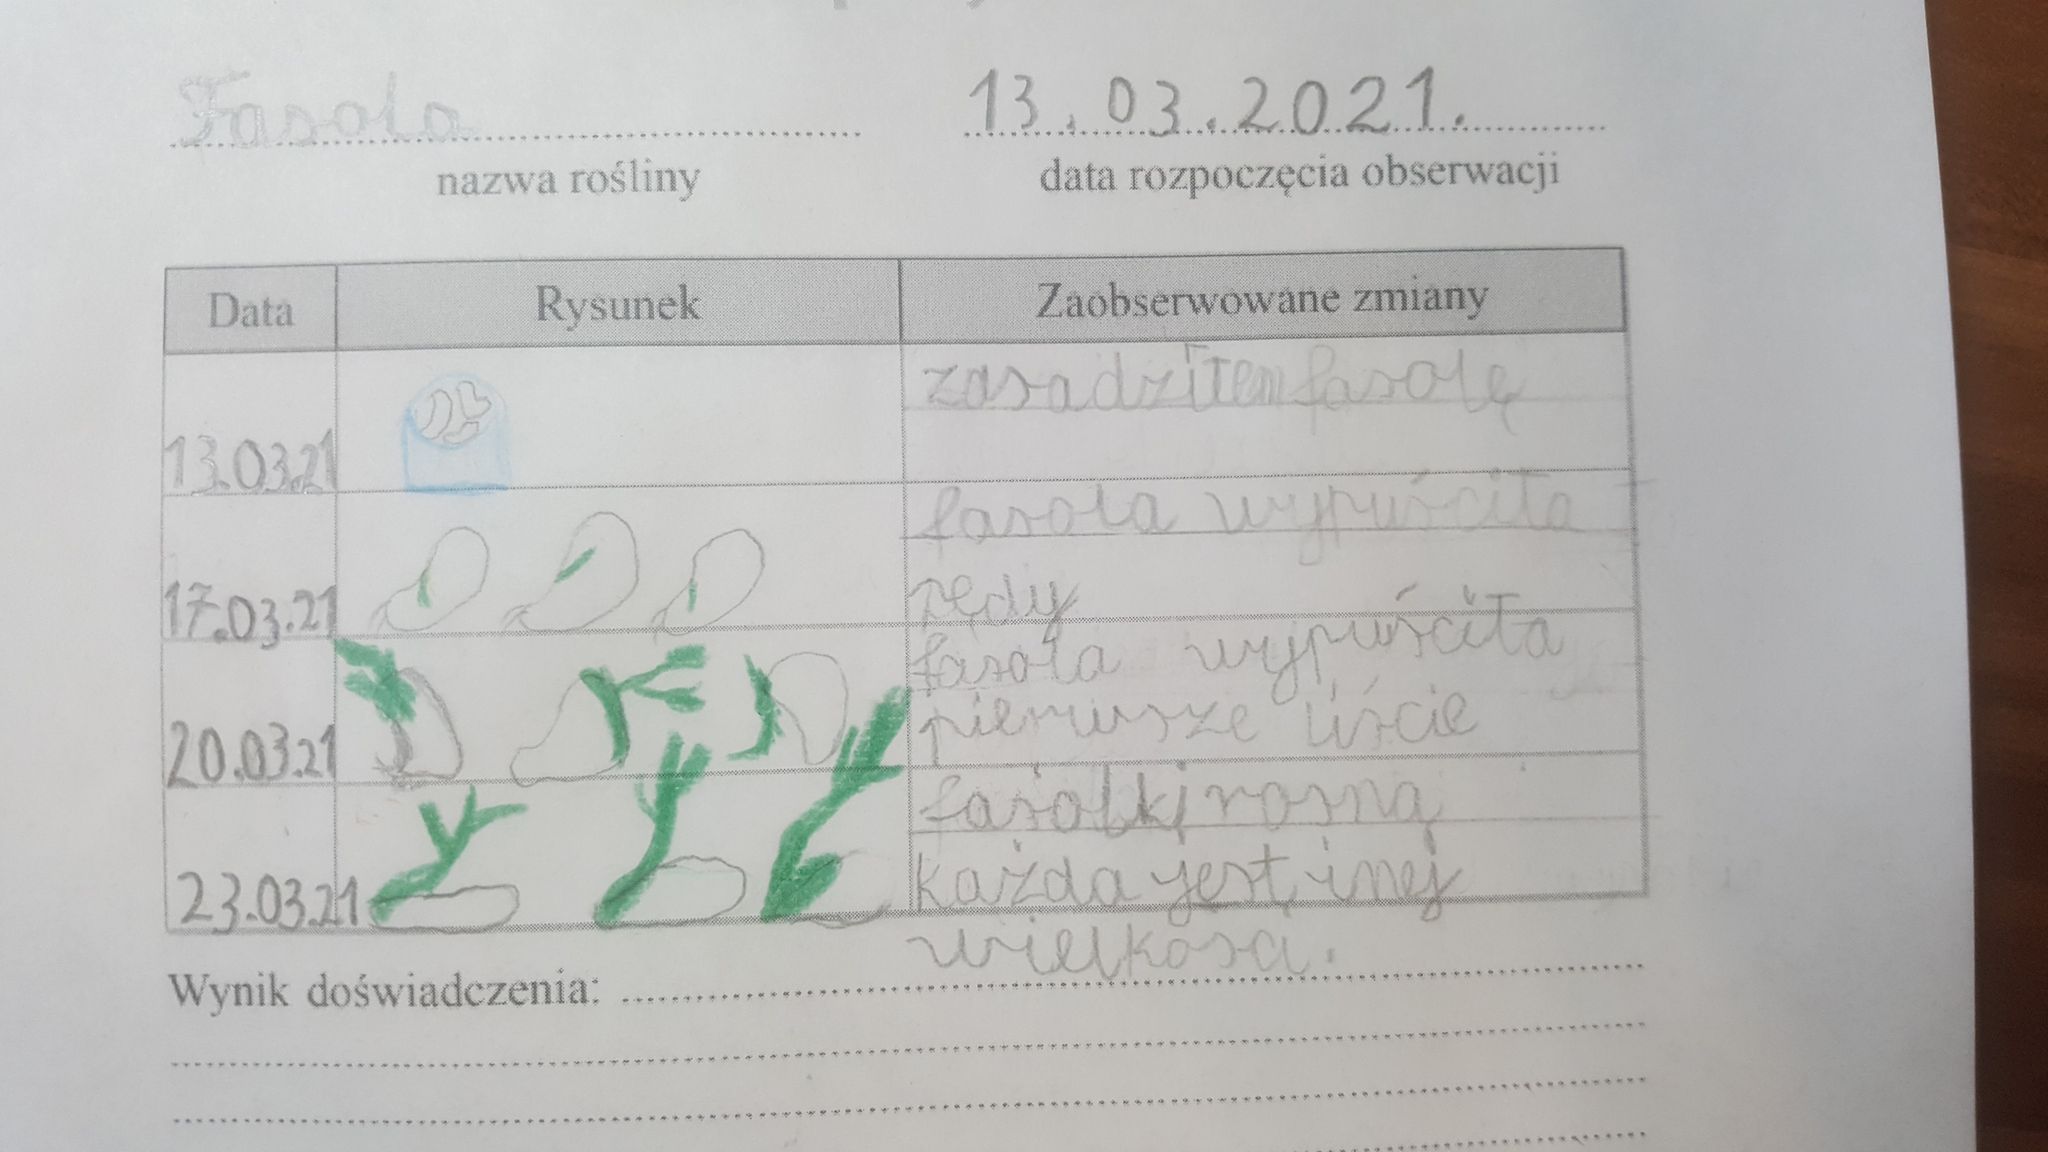 Fasola 13.03.2021.
nazwa rośliny data rozpoczęcia obserwacji
Data Rysunek Zaobserwowane zmiany
zasadziłem fasolę
13.03.21
fasola wypuściła
17.03.21 zędy
fasola wypuściła
20.03.21 pierwsze liście
fasolki rosną
23.03.21 każda jest inej
wielkosą.
Wynik doświadczenia: